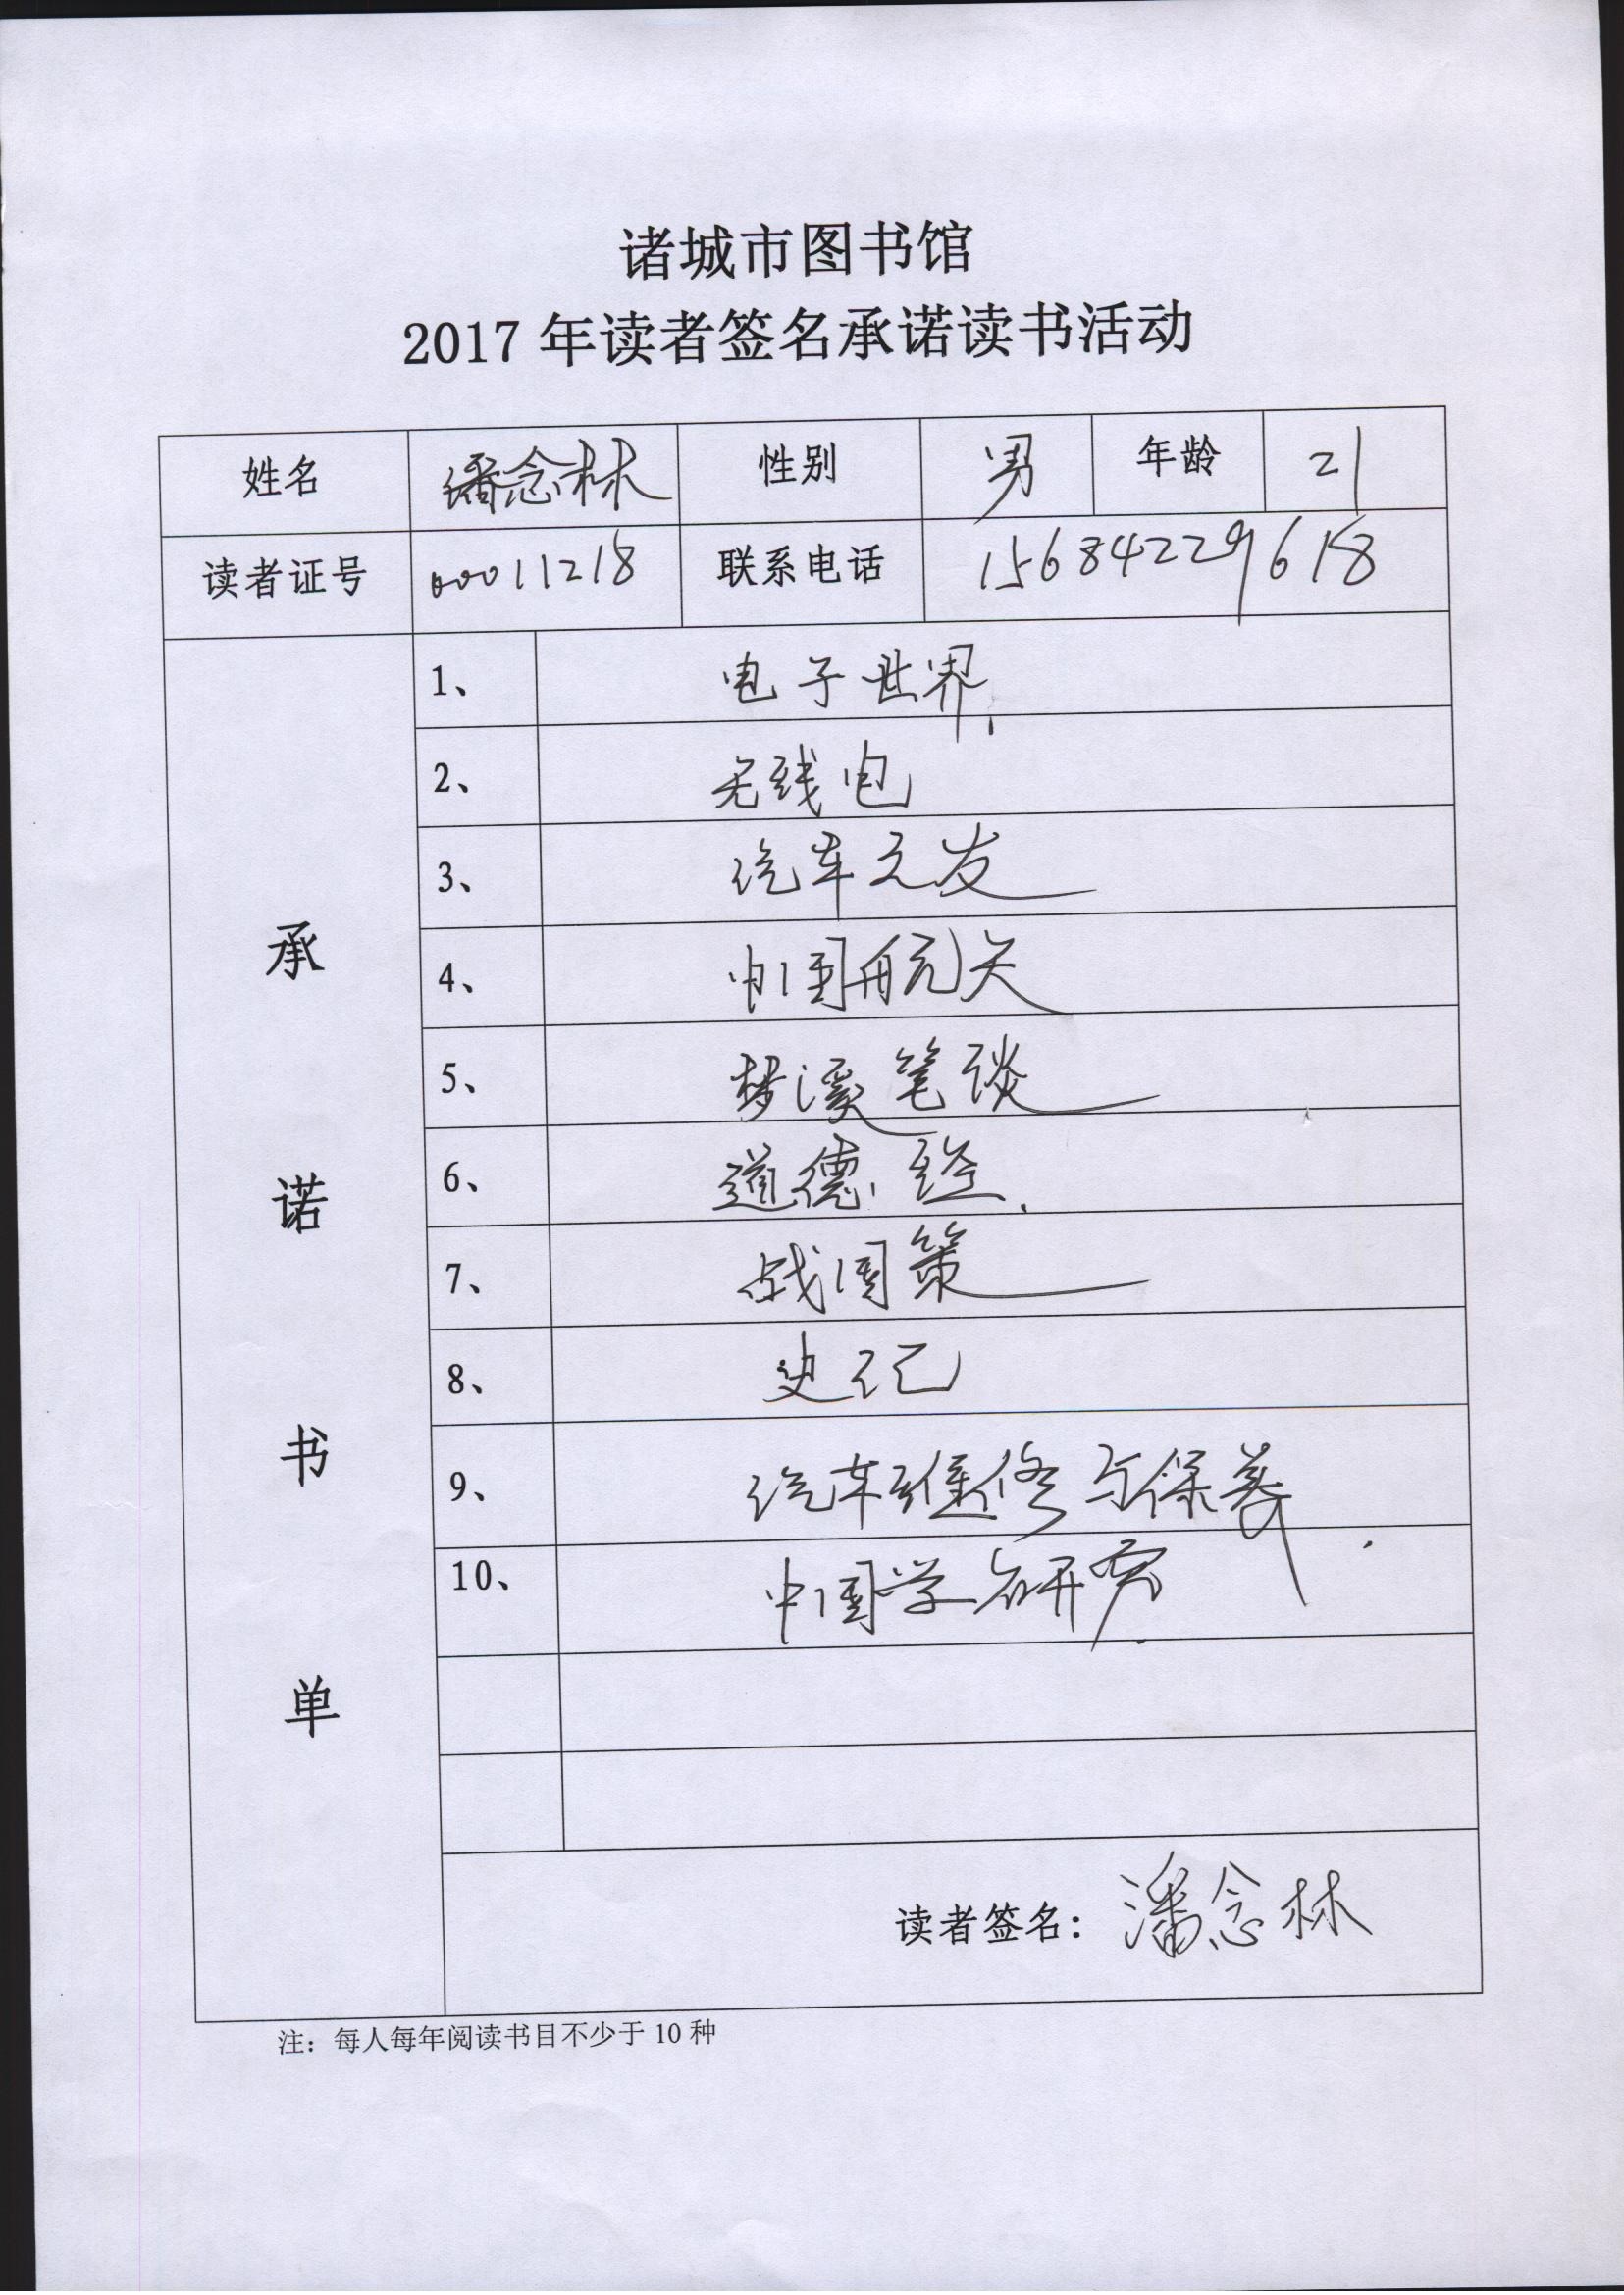 诸城市图书馆
2017 年读者签名承诺读书活动
姓名 潘念林 性别 男 年龄 21
读者证号 00011218 联系电话 15684229618
承诺书单
1、 电子世界
2、 无线电
3、 汽车之友
4、 中国航天
5、 梦溪笔谈
6、 道德经
7、 战国策
8、 史记
9、 汽车维修与保养
10、 中国学研究
读者签名: 潘念林
注: 每人每年阅读书目不少于 10 种